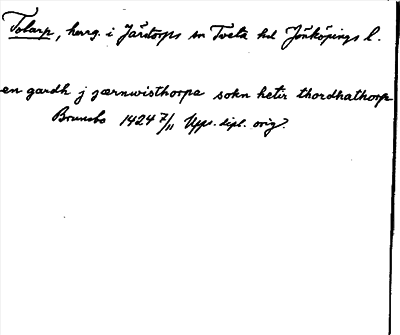 Tolarp, herrg. i Järstorps sn Tveta hd Jönköpings l.
en gardh j jærnwisthorpa sokn hetir thordhathorp
Brunsbo 1424 7/11 Upps. dipl. orig.